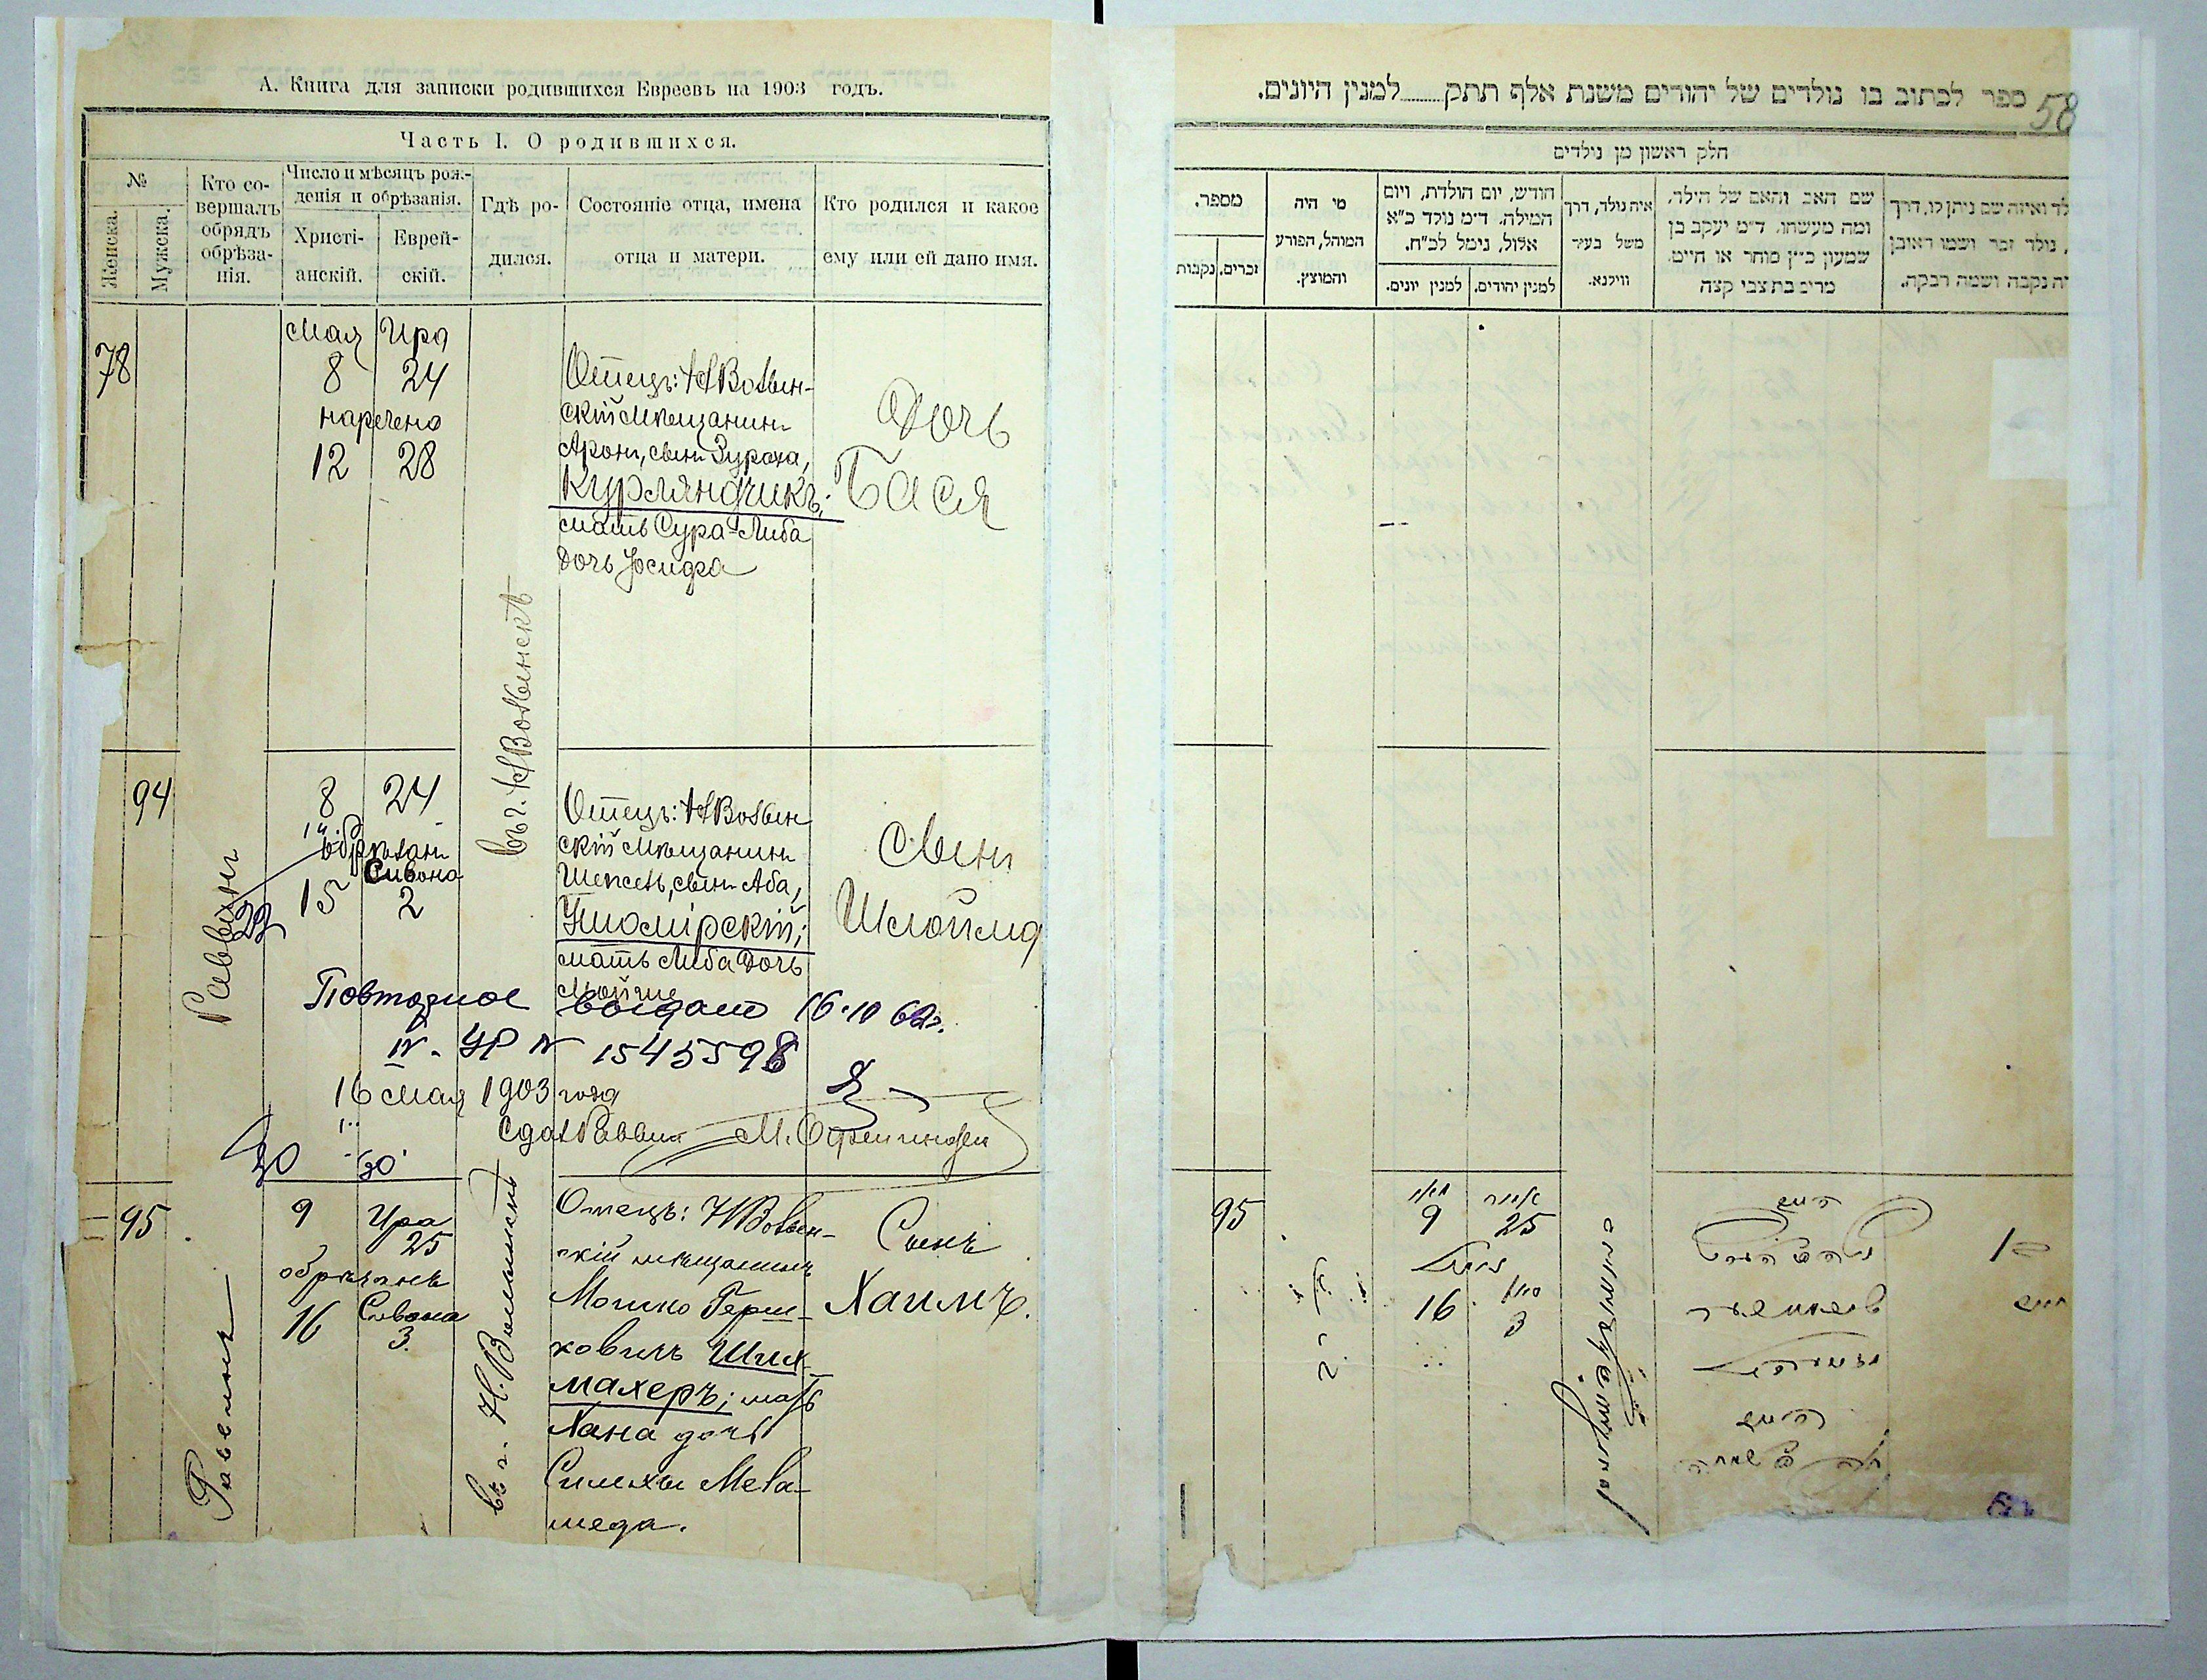 А. Книга для записки родившихся Евреевъ на 1903 годъ.
Часть I. О родившихся.
№
Женска.
Мужска.
Кто со-
вершалъ
обрядъ
обрѣза-
нія.
Число и мѣсяцъ рож-
денія и обрѣзанія.
Христі-
анскій.
Еврей-
скій.
Гдѣ ро-
дился.
Состояніе отца, имена
отца и матери.
Кто родился и какое
ему или ей дано имя.
78
Мая Ира
8 24
наречена
12 28
Отецъ: НВолын-
скій мѣщанинъ
Аронъ, сынъ Зураха,
Курляндчикъ;
мать Сура-Либа
дочь Іосифа
Дочь
Бася
въ г. НВолынскѣ
Раввинъ
94
8 24
обрѣзанъ
Сивона
15 2
22
Отецъ: НВолын
скій мѣщанинъ
Шепсель, сынъ Аба,
Ушомірскій;
мать Либа дочь
Мойше
Сынъ
Шлойма
Повторное выдано 16.10 62г.
IV-УР № 1545598
16 Мая 1903 года
Сдалъ Раввинъ
20 20
95
9 Ира
25
обрѣзанъ
16 Сивона
3.
Раввинъ
въ г. Н.Волынскѣ
Отецъ: НВолын-
скій мѣщанинъ
Мошко Герш-
ковичъ Ших-
махеръ; мать
Хана дочь
Симхи Мела-
меда.
Сынъ
Хаимъ.
58
ספר לכתוב בו נולדים של יהודים משנת אלף תתק........למנין היונים.
חלק ראשון מן נולדים
מספר.
זכרים.
נקבות
מי היה
המוהל, הפורע
והמוצץ.
חודש, יום הולדת, ויום
המילה. ד״מ נולד כ״א
אלול, נימל לכ״ח.
למנין יונים.
למנין יהודים.
איה נולד, דרך
משל בעיר
ווילנא.
שם האב והאם של הילד,
ומה מעשהו. ד״מ יעקב בן
שמעון כ״ץ סוחר או חייט.
מרים בת צבי קצה
לד ואיזה שם ניתן לו, דרך
נולד זכר ושמו ראובן
יה נקבה ושמה רבקה.
95
9 25
16 3